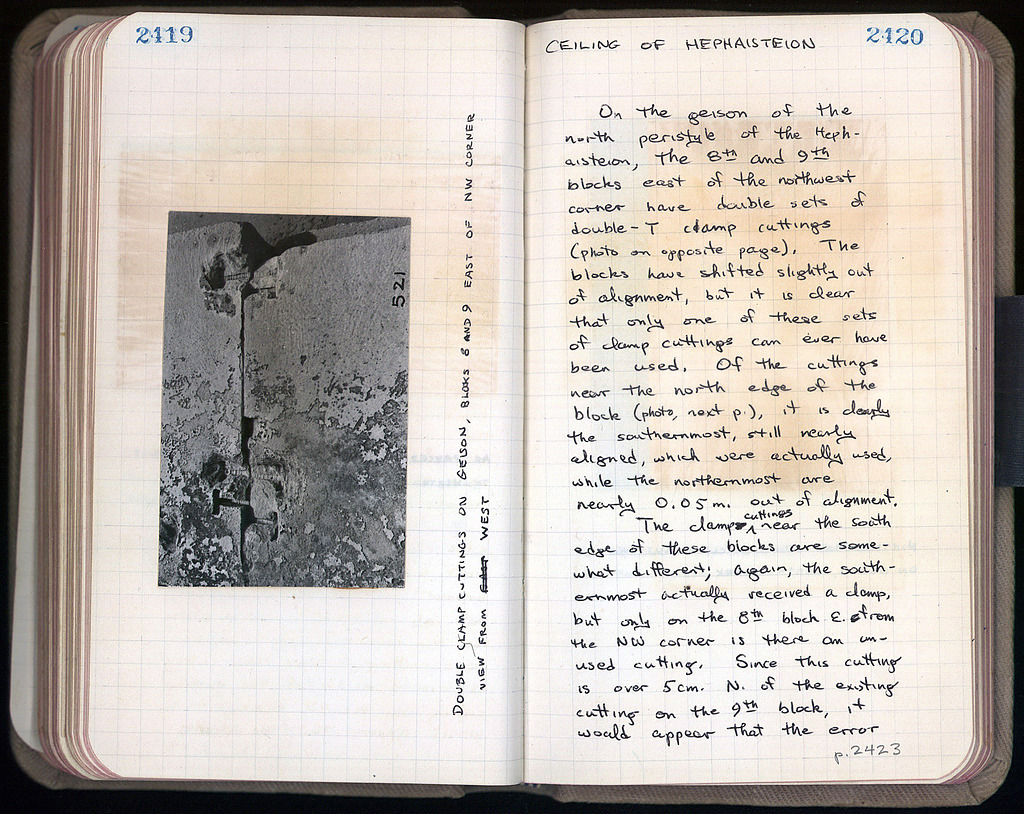 2419
521
DOUBLE CLAMP CUTTINGS ON GEISON, BLOKS 8 AND 9 EAST OF NW CORNER
VIEW FROM EAST WEST
2420
CEILING OF HEPHAISTEION
On the geison of the
north peristyle of the Heph-
aisteion, the 8th and 9th
blocks east of the northwest
corner have double sets of
double-T clamp cuttings
(photo on opposite page). The
blocks have shifted slightly out
of alignment, but it is clear
that only one of these sets
of clamp cuttings can ever have
been used. Of the cuttings
near the north edge of the
block (photo, next p.), it is clearly
the southernmost, still nearly
aligned, which were actually used,
while the northernmost are
nearly 0.05m. out of alignment.
The clamp cuttings near the south
edge of these blocks are some-
what different; again, the south-
ernmost actually received a clamp,
but only on the 8th block E. from
the NW corner is there an un-
used cutting. Since this cutting
is over 5cm. N. of the existing
cutting on the 9th block, it
would appear that the error
p.2423